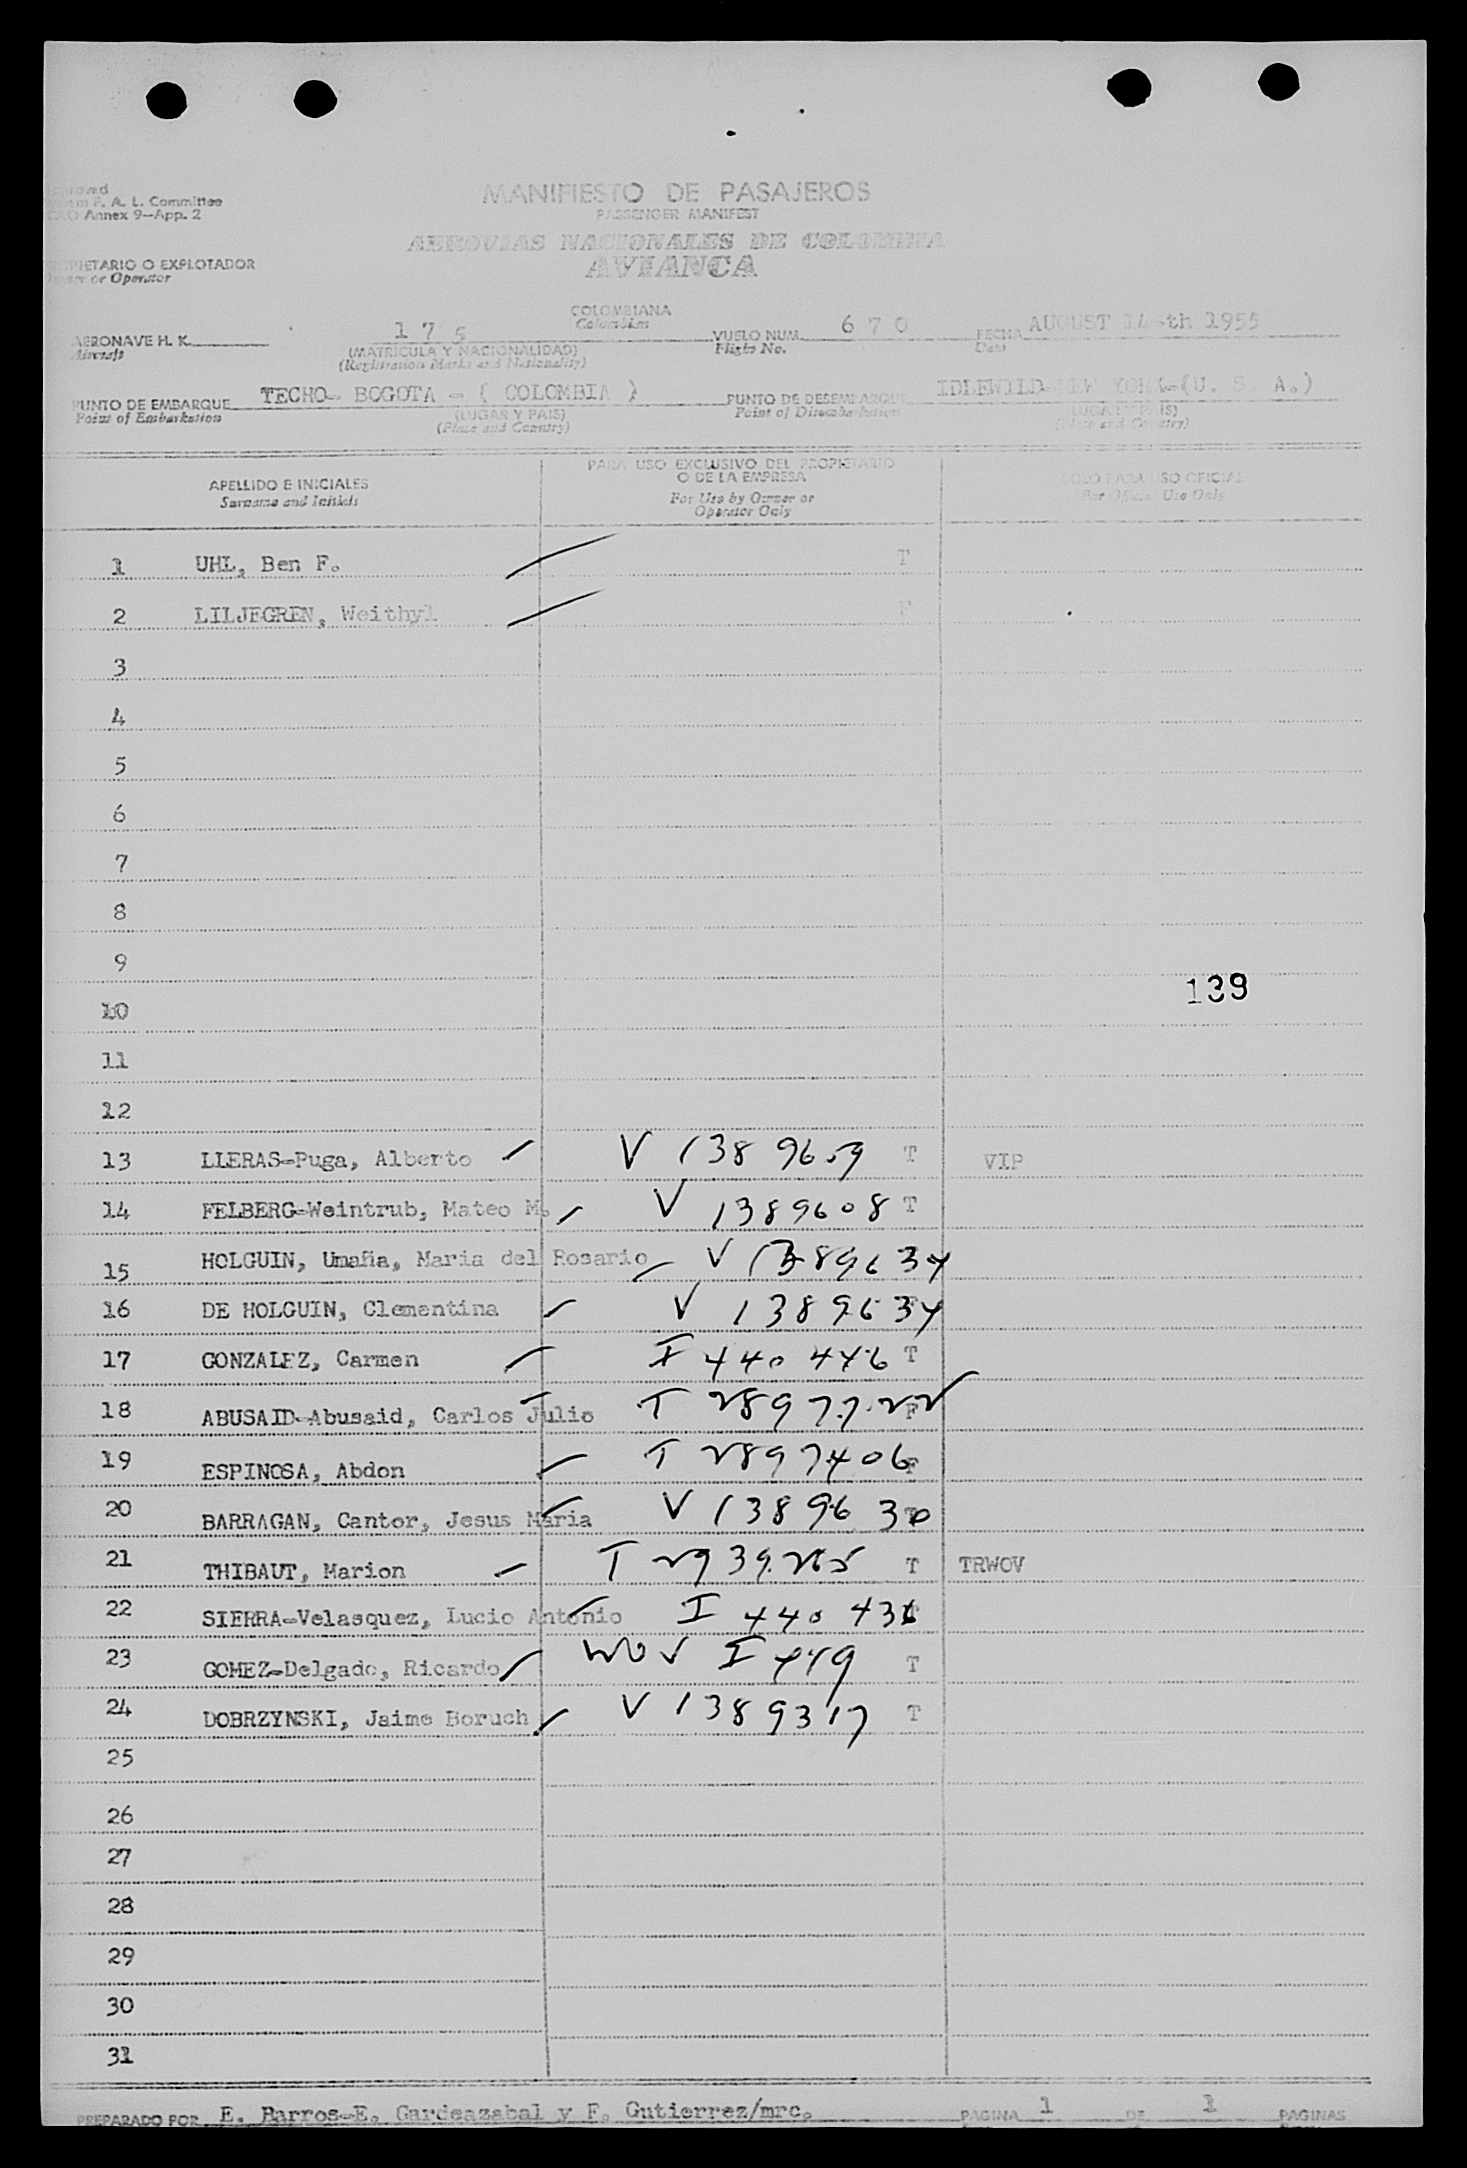 F. A. L. Committee
Annex 9-App. 2
MANIFIESTO DE PASAJEROS
PASSENGER MANIFEST
AEROVIAS NACIONALES DE COLOMBIA
AVIANCA
O EXPLOTADOR
or Operator
COLOMBIANA
Colombian
AERONAVE H. K. 175 VUELO NUM. 670 FECHA AUGUST 14-th 1955
Aircraft (MATRICULA Y NACIONALIDAD) Flight No. Date
(Registration Marks and Nationality)
PUNTO DE EMBARQUE TECHO- BOGOTA - ( COLOMBIA ) PUNTO DE DESEMBARQUE IDLEWILD-NEW YORK-(U. S. A.)
Point of Embarkation (LUGAR Y PAIS) Point of Disembarkation (LUGAR Y PAIS)
(Place and Country) (Place and Country)
APELLIDO E INICIALES
Surname and Initials
PARA USO EXCLUSIVO DEL PROPIETARIO
O DE LA EMPRESA
For Use by Owner or
Operator Only
SOLO PARA USO OFICIAL
For Official Use Only
1 UHL, Ben F. T
2 LILJEGREN, Weithyl F
3
4
5
6
7
8
9
139
10
11
12
13 LLERAS-Puga, Alberto V 1389659 T VIP
14 FELBERG-Weintrub, Mateo M. V 1389608 T
15 HOLGUIN, Umaña, Maria del Rosario V 1389634
16 DE HOLGUIN, Clementina V 1389634
17 GONZALEZ, Carmen I 440446 T
18 ABUSAID-Abusaid, Carlos Julio T 2897722 F
19 ESPINOSA, Abdon T 2897406 F
20 BARRAGAN, Cantor, Jesus Maria V 1389630
21 THIBAUT, Marion T 2939265 T TRWOV
22 SIERRA-Velasquez, Lucio Antonio I 440436
23 GOMEZ-Delgado, Ricardo WOV I 419 T
24 DOBRZYNSKI, Jaime Boruch V 1389317 T
25
26
27
28
29
30
31
PREPARADO POR E. Barros-E. Gardeazabal y F. Gutierrez/mrc. PAGINA 1 DE 1 PAGINAS